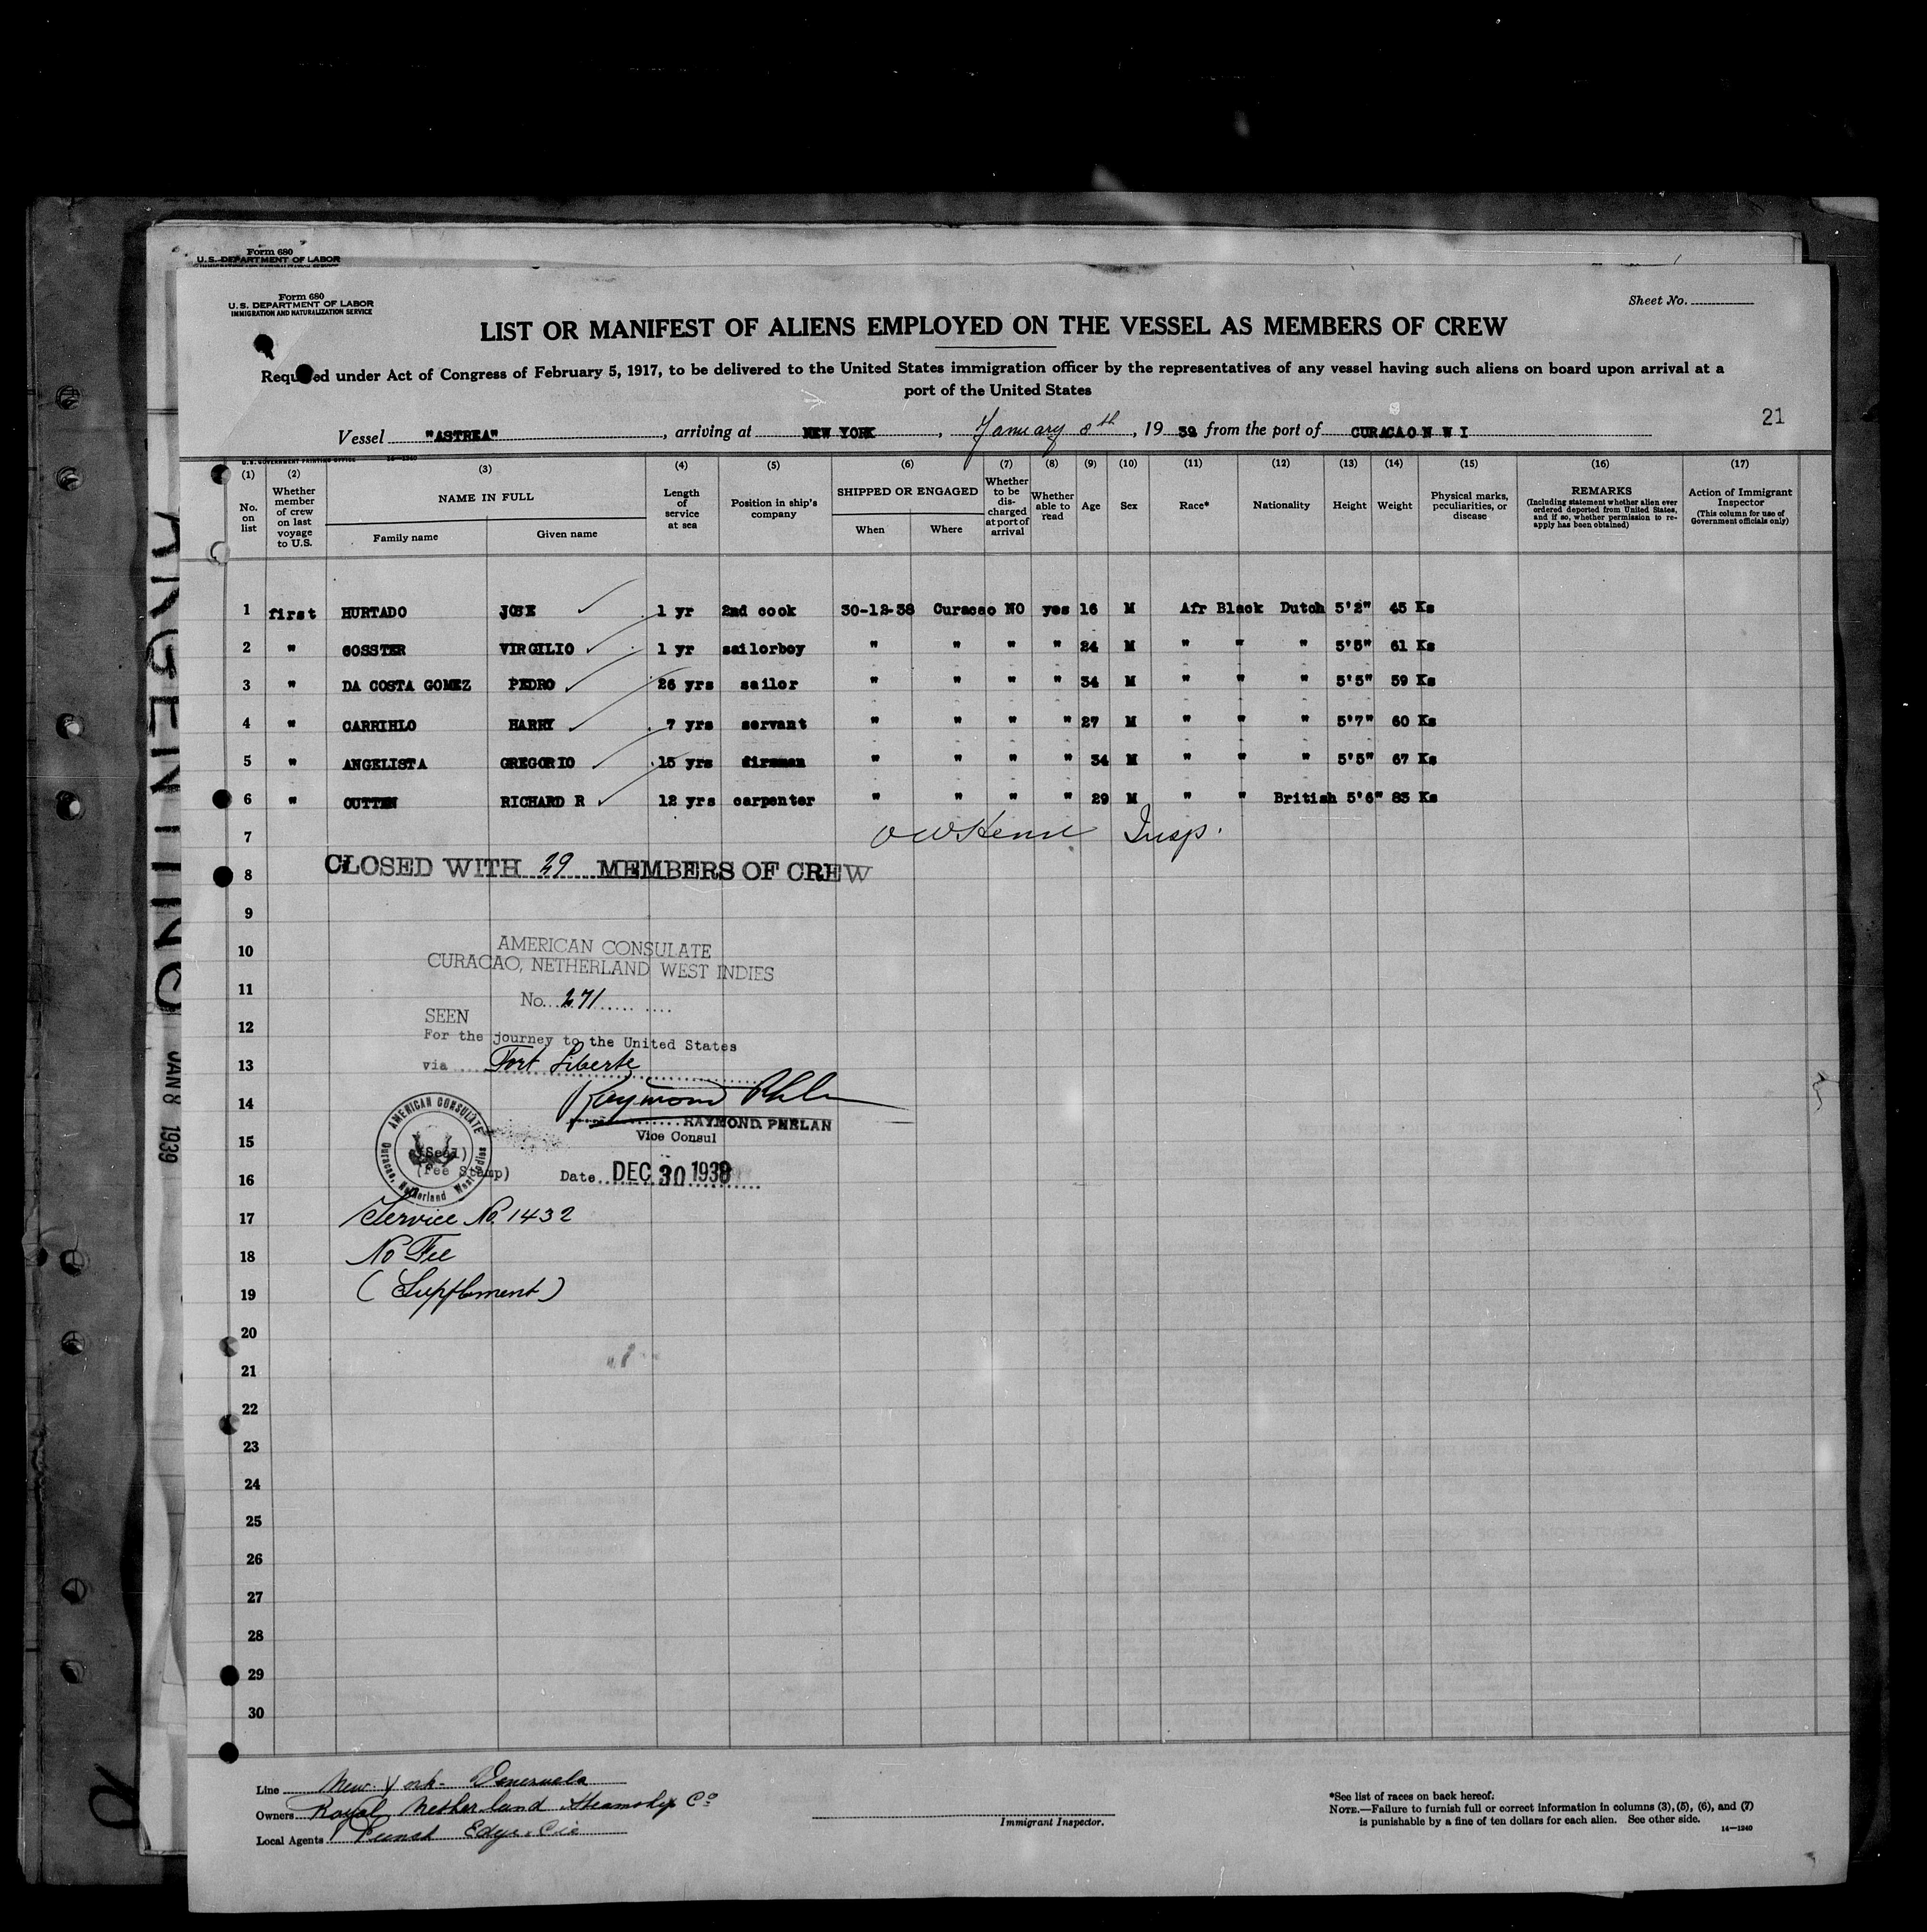 Form 680
U. S. DEPARTMENT OF LABOR
Form 680
U. S. DEPARTMENT OF LABOR
IMMIGRATION AND NATURALIZATION SERVICE
Sheet No.
LIST OR MANIFEST OF ALIENS EMPLOYED ON THE VESSEL AS MEMBERS OF CREW
Required under Act of Congress of February 5, 1917, to be delivered to the United States immigration officer by the representatives of any vessel having such aliens on board upon arrival at a
port of the United States
21
Vessel "ASTREA", arriving at NEW YORK, January 8th, 1939 from the port of CURACAO N W I
U. S. GOVERNMENT PRINTING OFFICE 14—1240
(1) (2) (3) (4) (5) (6) (7) (8) (9) (10) (11) (12) (13) (14) (15) (16) (17)
No. on list
Whether member of crew on last voyage to U.S.
NAME IN FULL
Family name Given name
Length of service at sea
Position in ship's company
SHIPPED OR ENGAGED
When Where
Whether to be discharged at port of arrival
Whether able to read
Age
Sex
Race*
Nationality
Height
Weight
Physical marks, peculiarities, or disease
REMARKS
(Including statement whether alien ever ordered deported from United States, and if so, whether permission to reapply has been obtained)
Action of Immigrant Inspector
(This column for use of Government officials only)
1 first HURTADO JOSE 1 yr 2nd cook 30-12-38 Curacao NO yes 16 M Afr Black Dutch 5'2" 45 Ks
2 " GOSSTER VIRGILIO 1 yr sailorboy " " " " 24 M " " " 5'5" 61 Ks
3 " DA COSTA GOMEZ PEDRO 26 yrs sailor " " " " 34 M " " " 5'5" 59 Ks
4 " CARRIHLO HARRY 7 yrs servant " " " " 27 M " " " 5'7" 60 Ks
5 " ANGELISTA GREGORIO 15 yrs fireman " " " " 34 M " " " 5'5" 67 Ks
6 " OUTTEN RICHARD R 12 yrs carpenter " " " " 29 M " " British 5'6" 83 Ks
7 Insp.
8 CLOSED WITH 29 MEMBERS OF CREW
9
10 AMERICAN CONSULATE
CURACAO, NETHERLAND WEST INDIES
11 No. 271
SEEN
12 For the journey to the United States
13 via Fort Liberte
14 Raymond Phelan
RAYMOND PHELAN
15 Vice Consul
AMERICAN CONSULATE
Curacao, Netherland West Indies
(Seal)
(Fee Stamp)
16 Date DEC 30 1938
17 Service No. 1432
18 No Fee
19 (Supplement)
20
21
22
23
24
25
26
27
28
29
30
ARGENTINO JAN 8 1939
Line New York - Venezuela
Owners Royal Netherland Steamship Co
Local Agents Funch Edye & Cie
Immigrant Inspector.
*See list of races on back hereof.
NOTE.—Failure to furnish full or correct information in columns (3), (5), (6), and (7)
is punishable by a fine of ten dollars for each alien. See other side.
14—1240